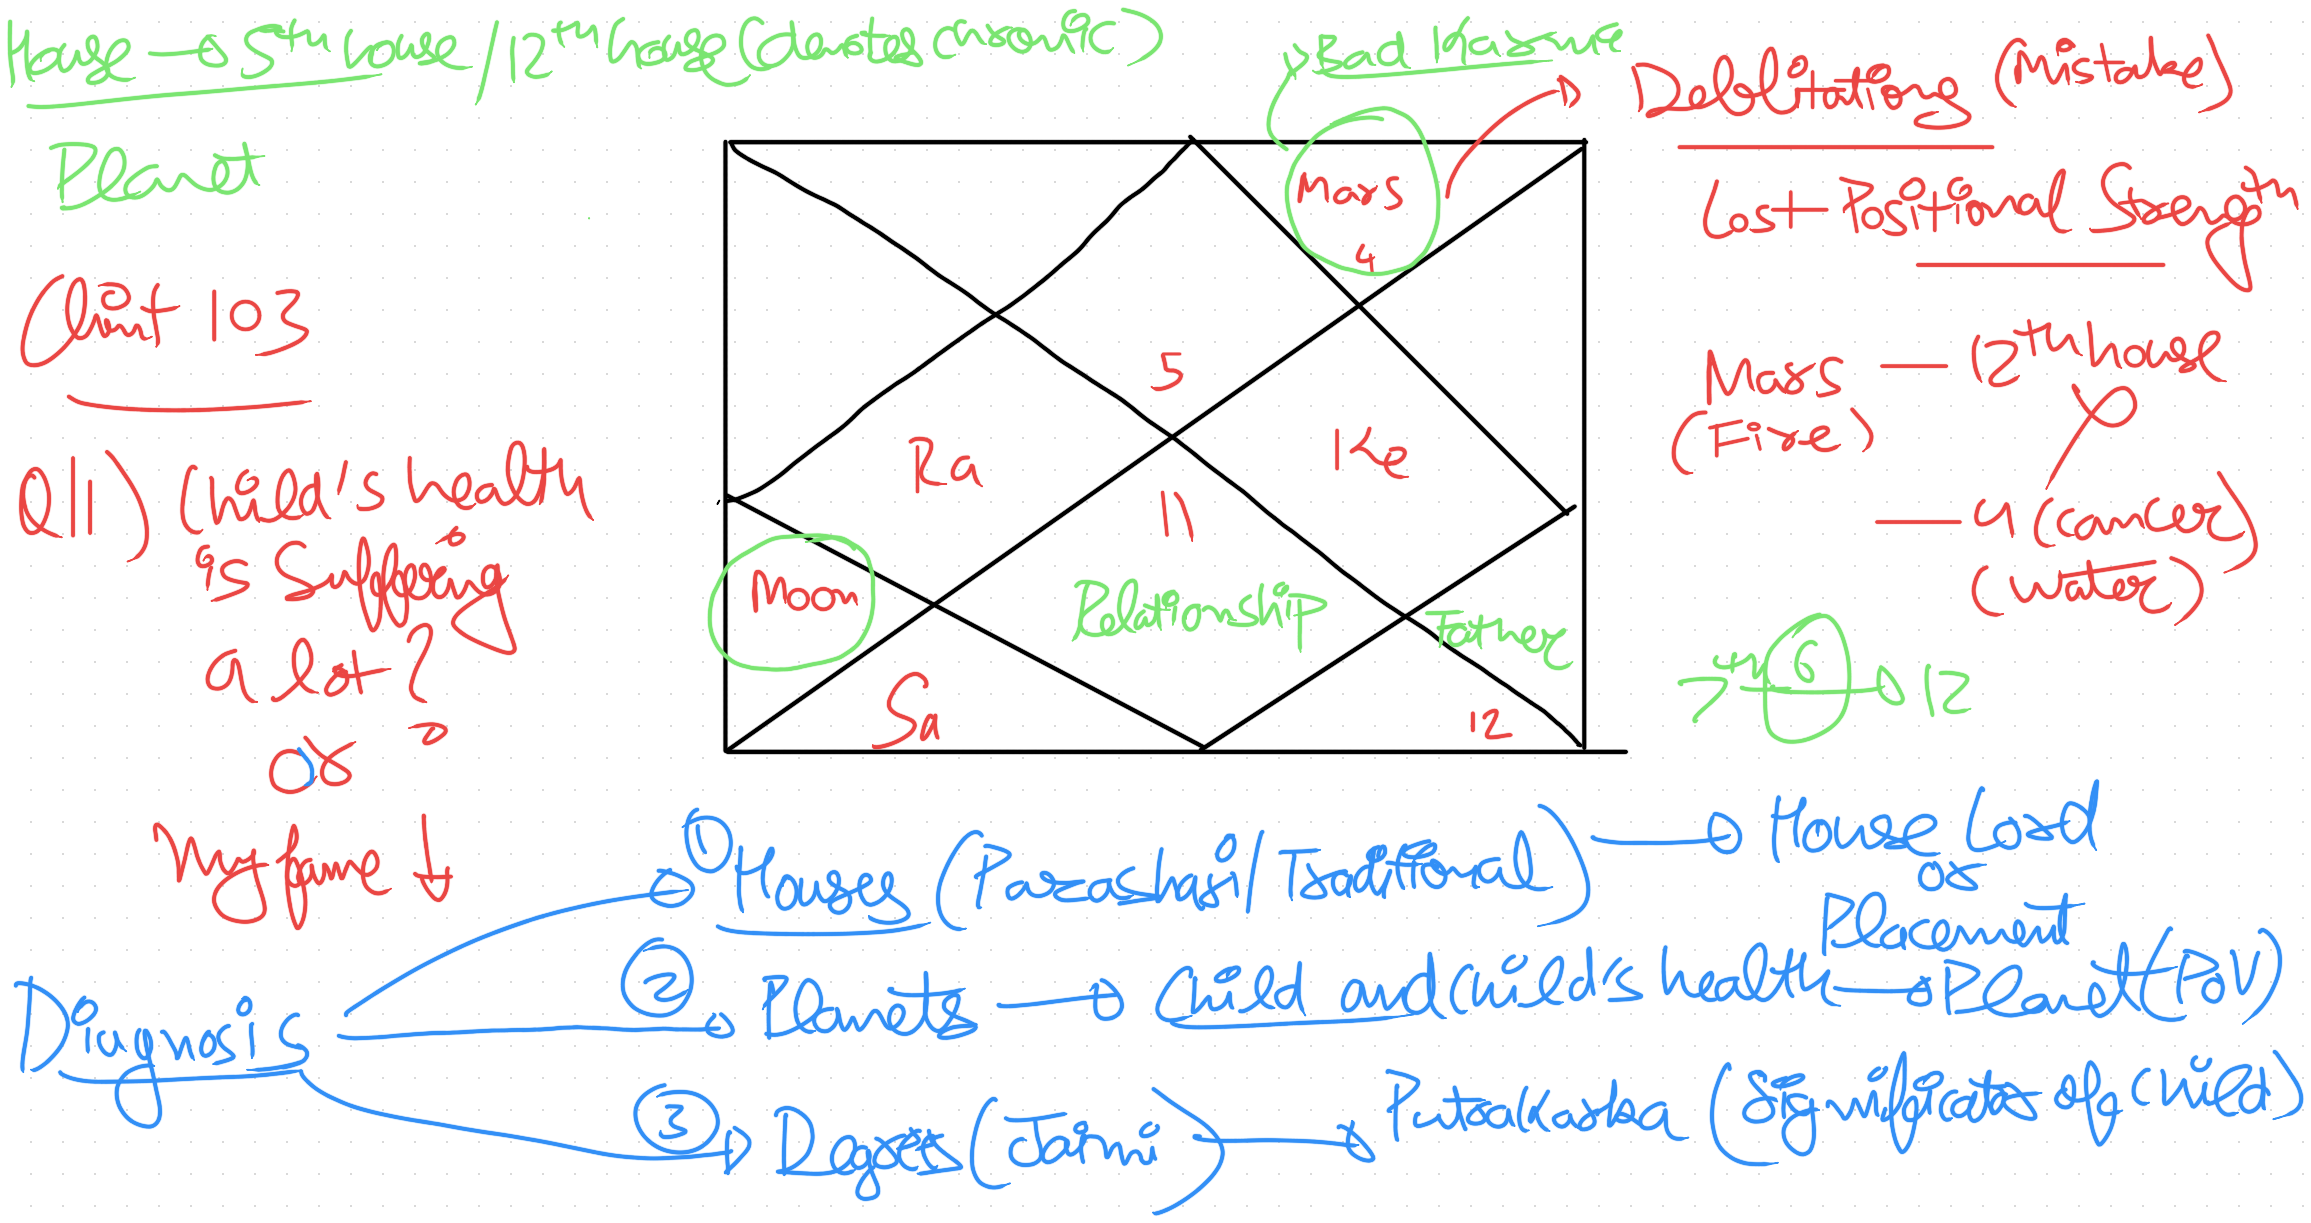 House → 5th house / 12th house (denotes chronic)
Planet
Client 103
Q11) Child's health
is Suffering
a lot?
or
My fame ↓
Bad Karmic
Mars
4
5
Ra
Ke
11
Moon
Relationship
Father
Sa
12
Deblitations (Mistake)
Lost Positional Strength
Mars — 12th house
(Fire)
— 4 (cancer)
(water)
7th 6 → 12
Diagnosis
① Houses (Parashari / Traditional) → House Lord
or
Placement
② Planets → Child and Child's health → Planet (POV)
③ Degrees (Jaimni) → Putrakarka (Significator of Child)